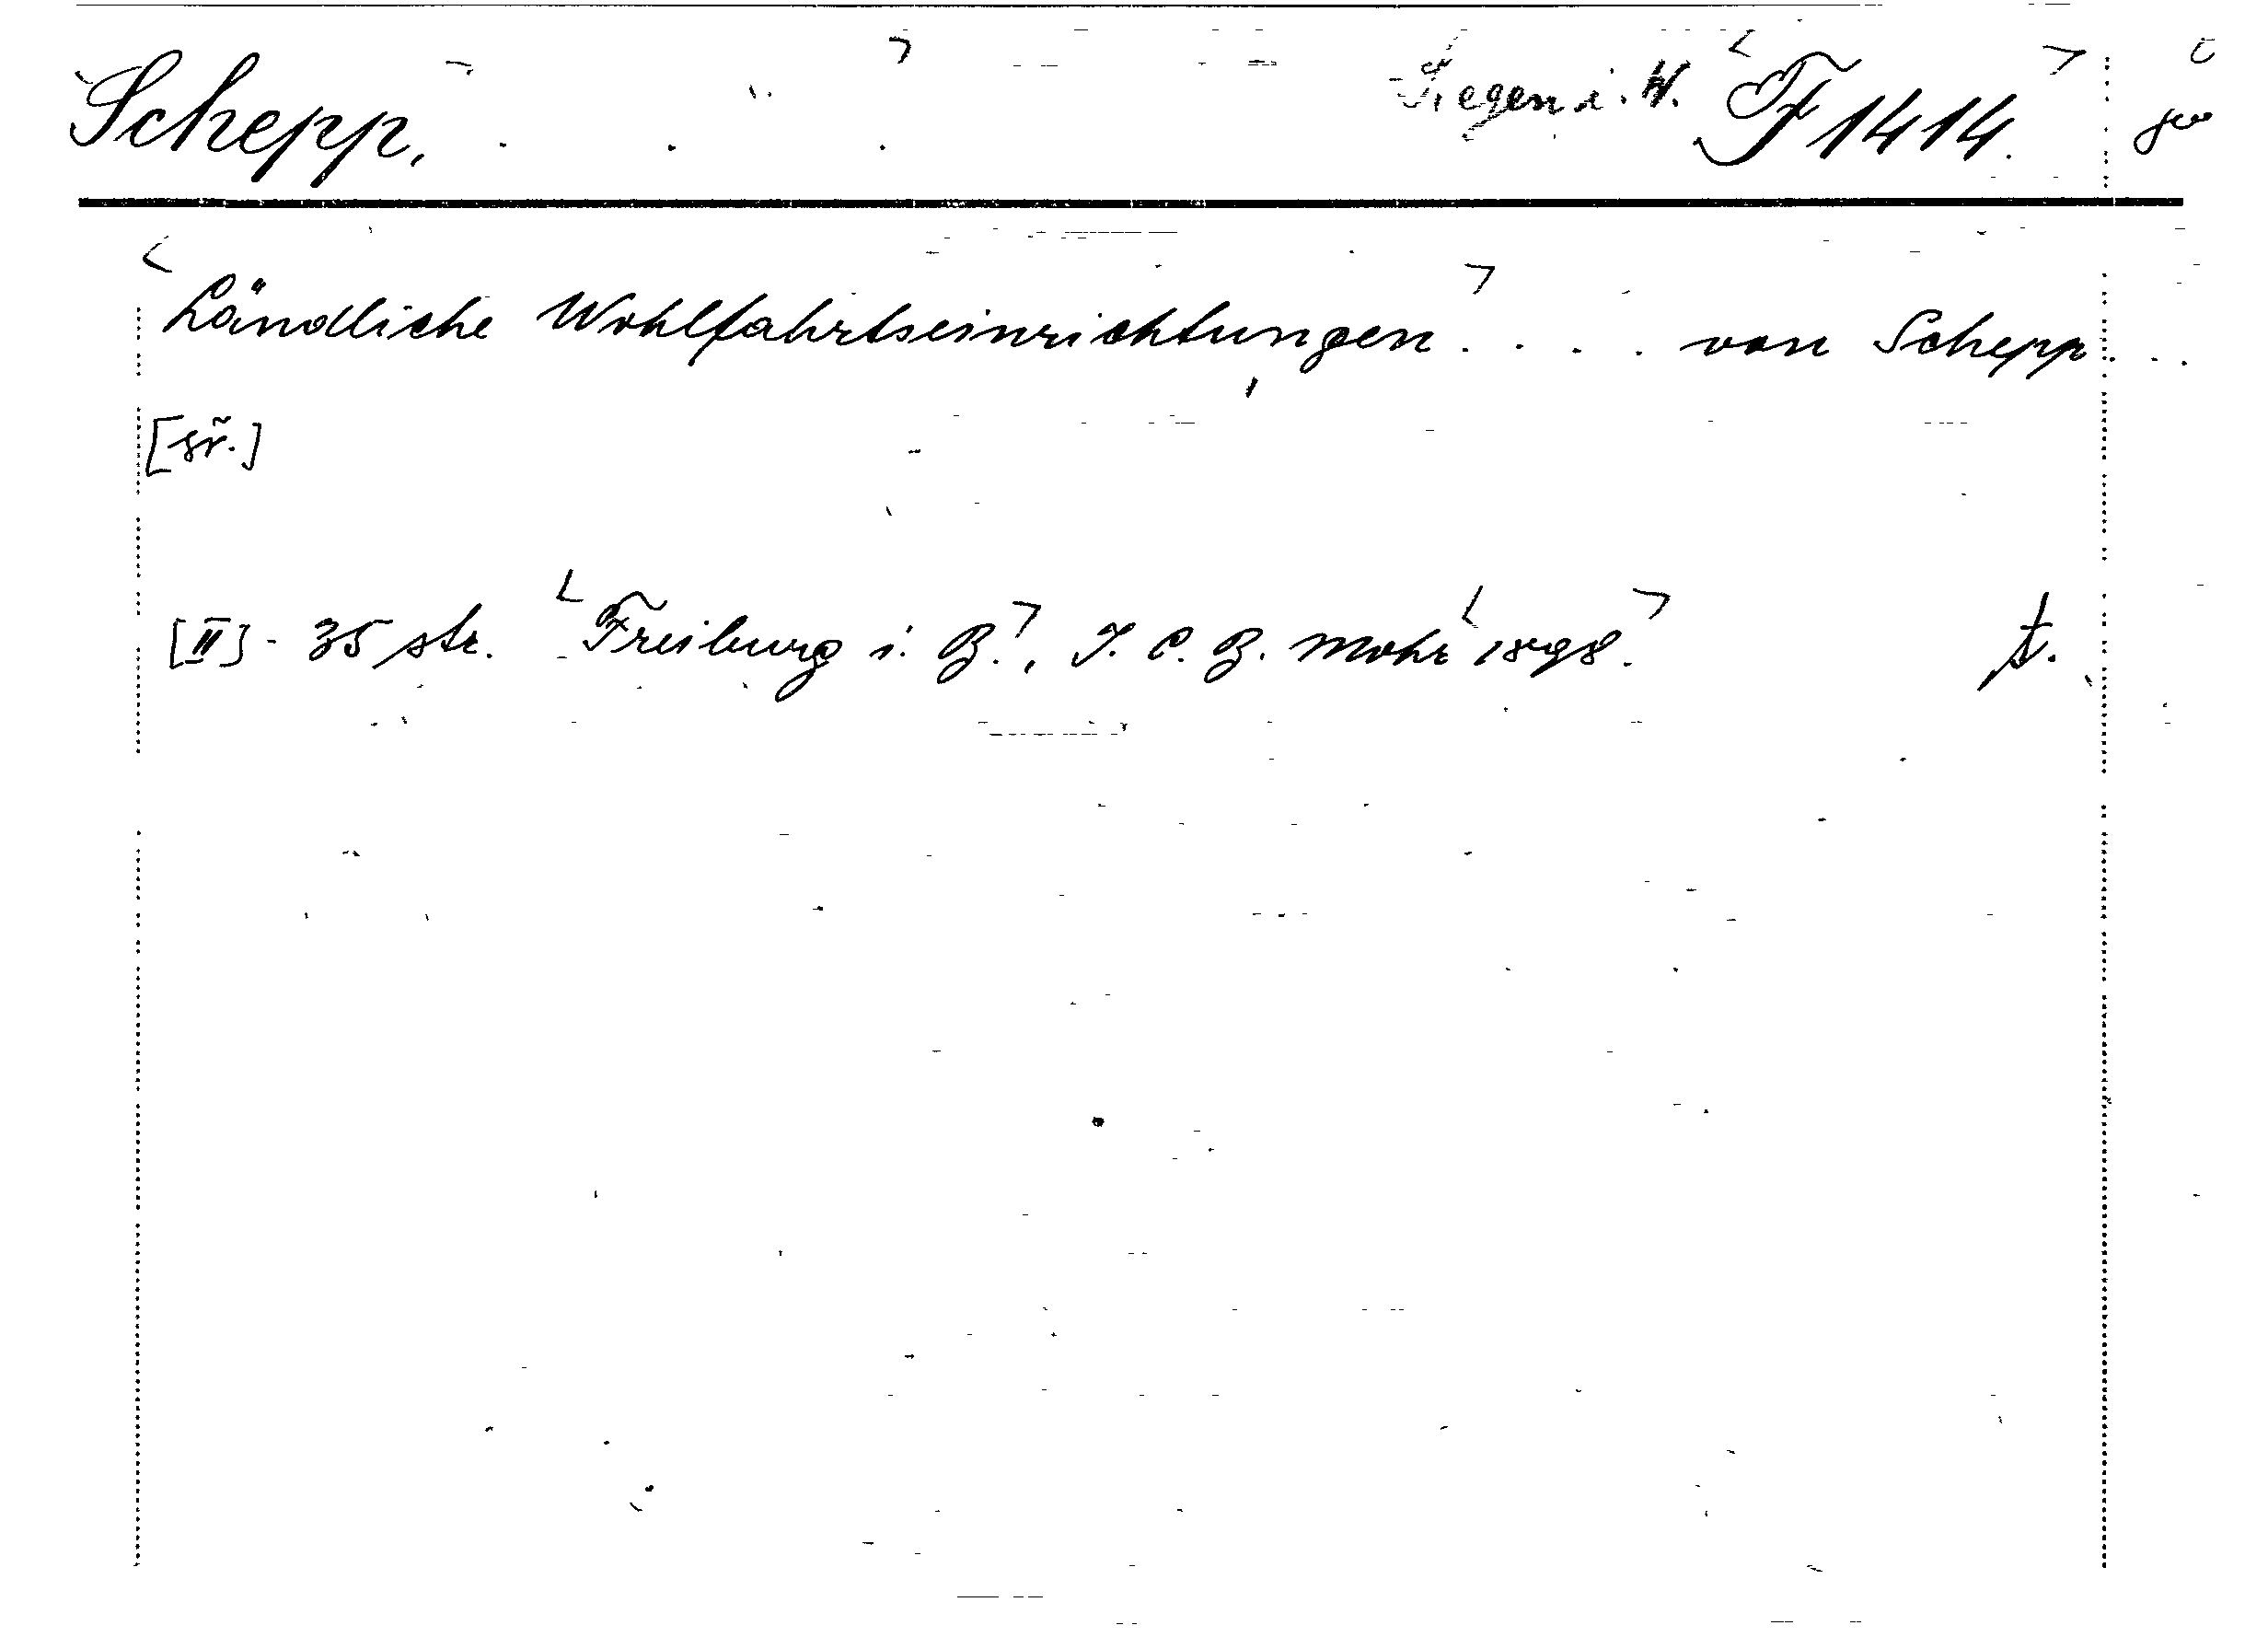 Schepp, . . . Siegen i. W. F 1414.
Ländliche Wohlfahrtseinrichtungen . . . . von Schepp . . .
[8r̃.]
[II] - 35 str. Freiburg i. B., J. C. B. Mohr 1898. t.